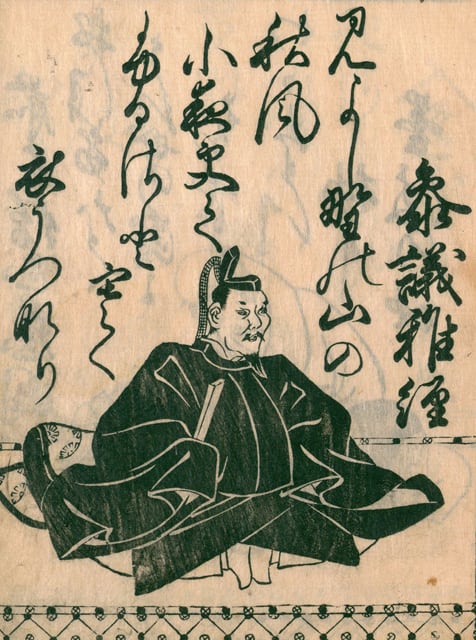 參議雅經
見よし野の山の
秋風
小夜更て
ふるさと
寒く
衣うつなり